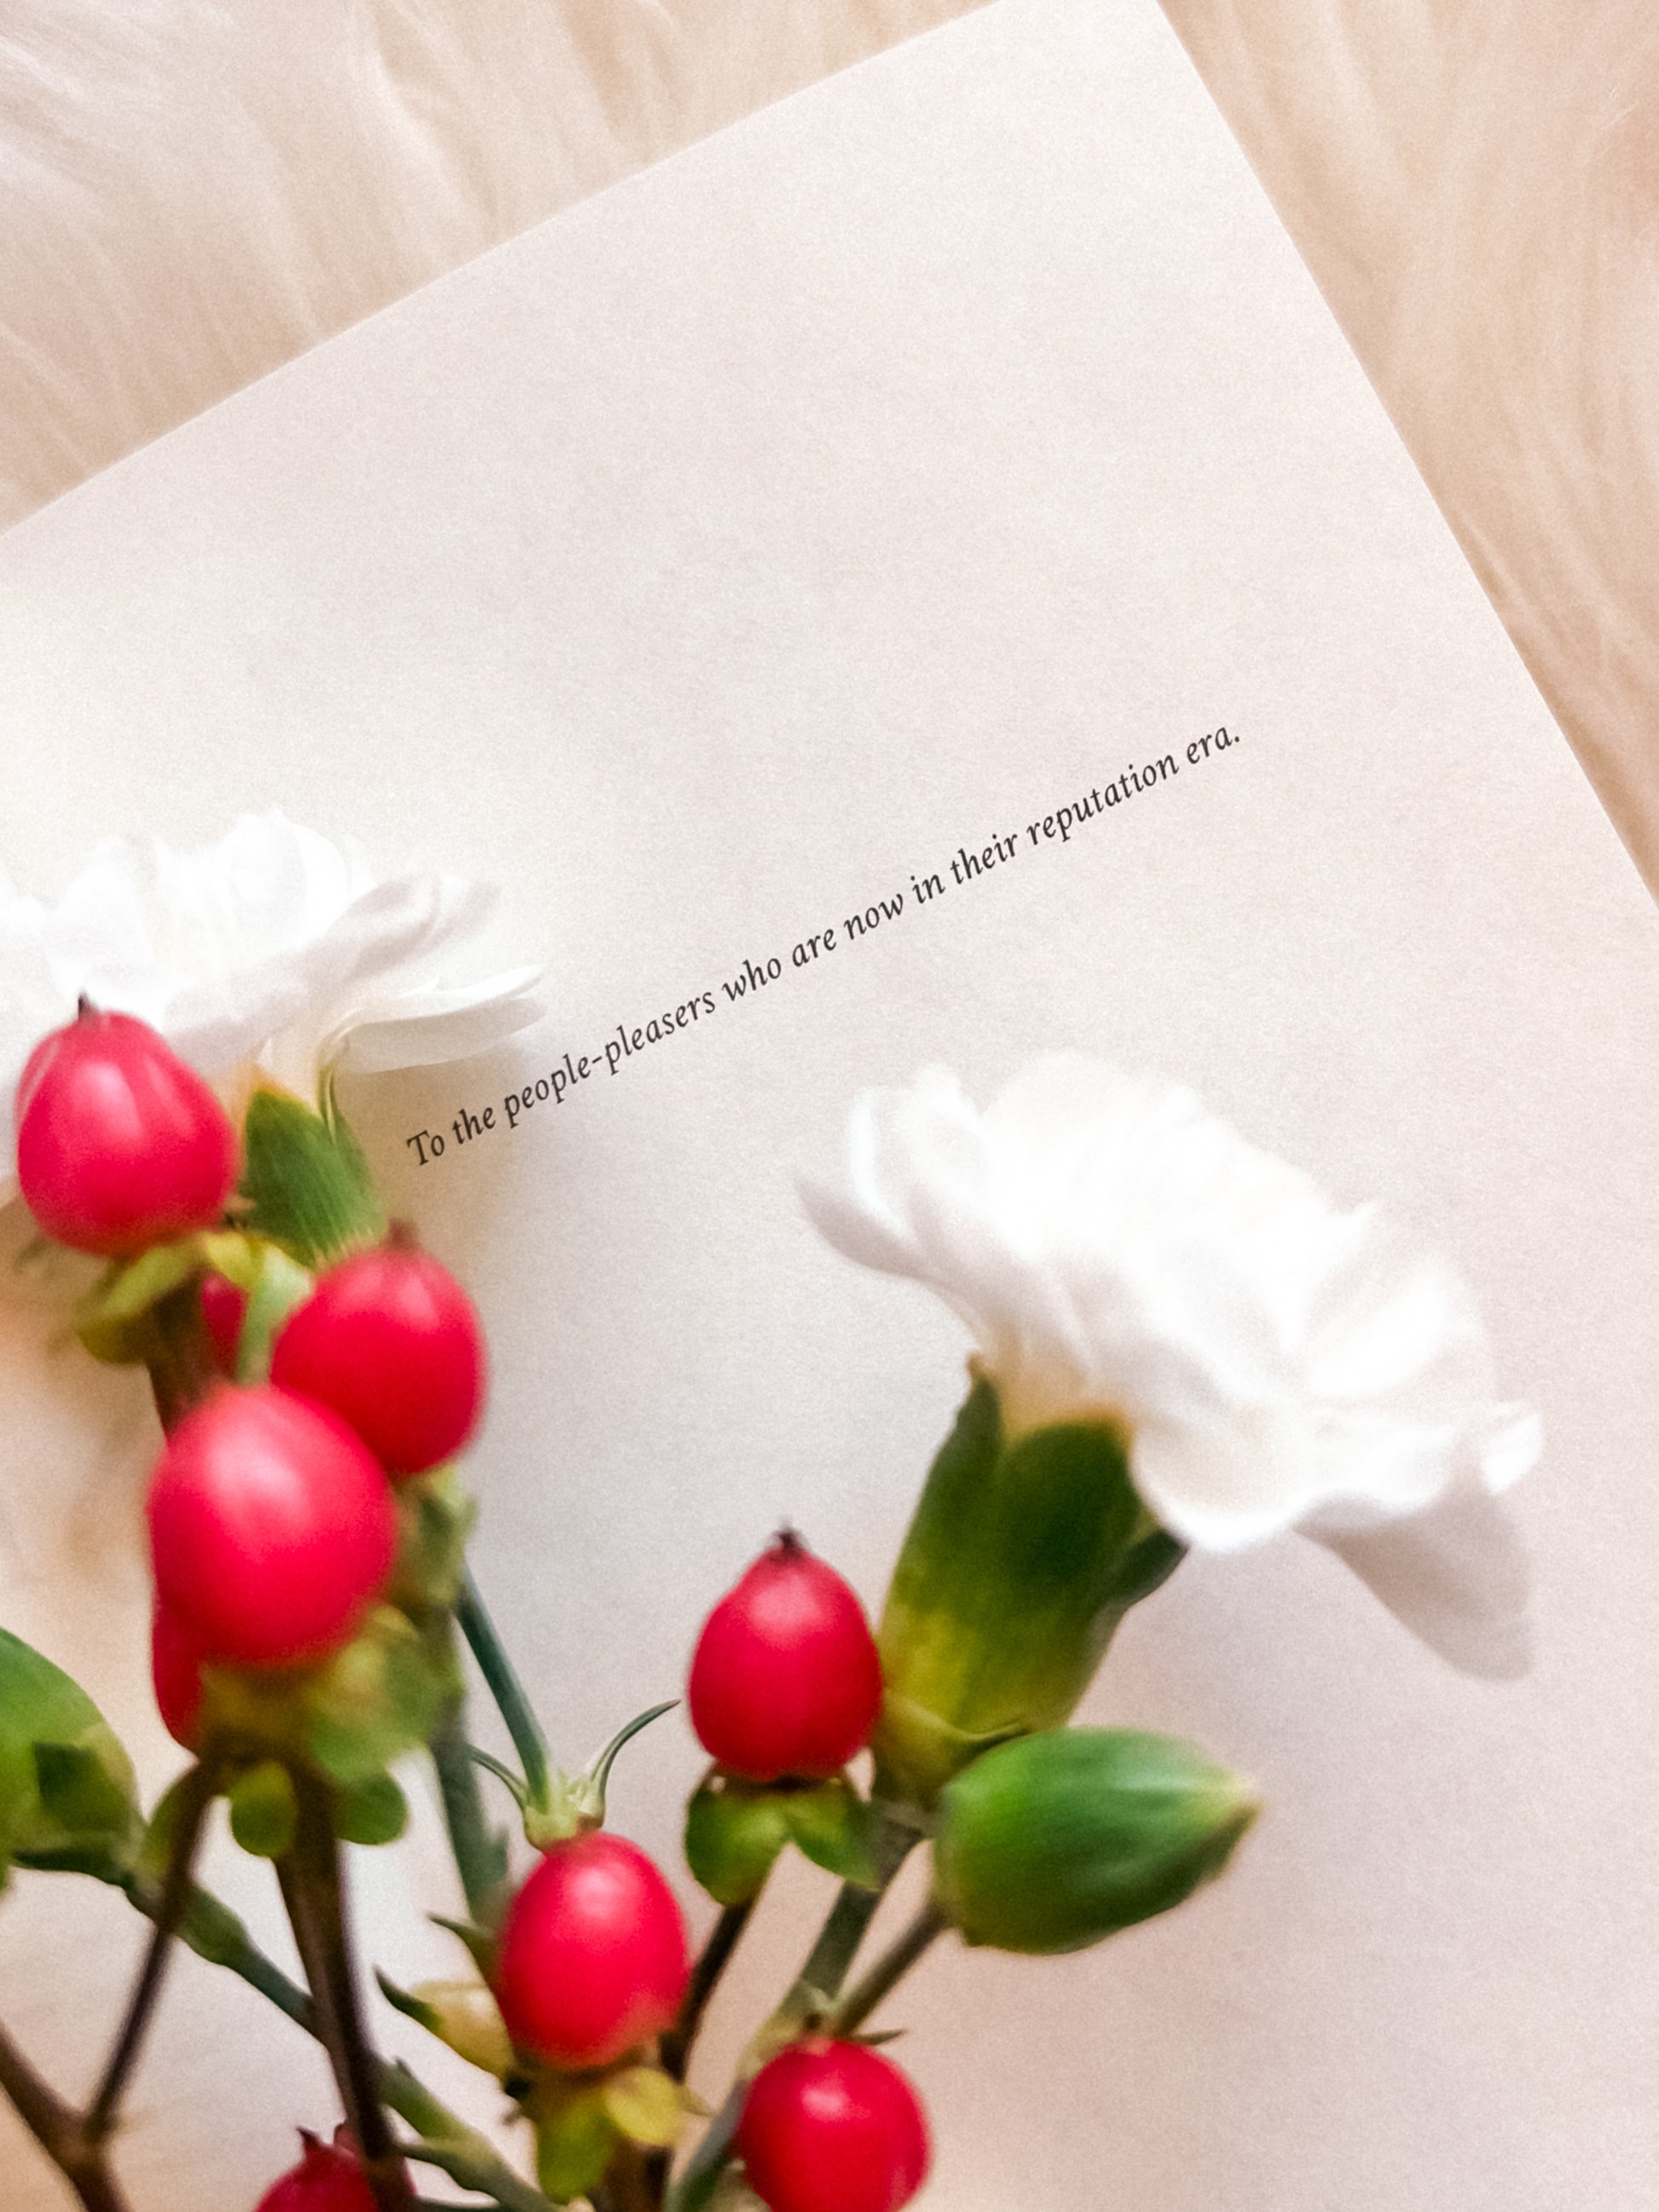 To the people-pleasers who are now in their reputation era.